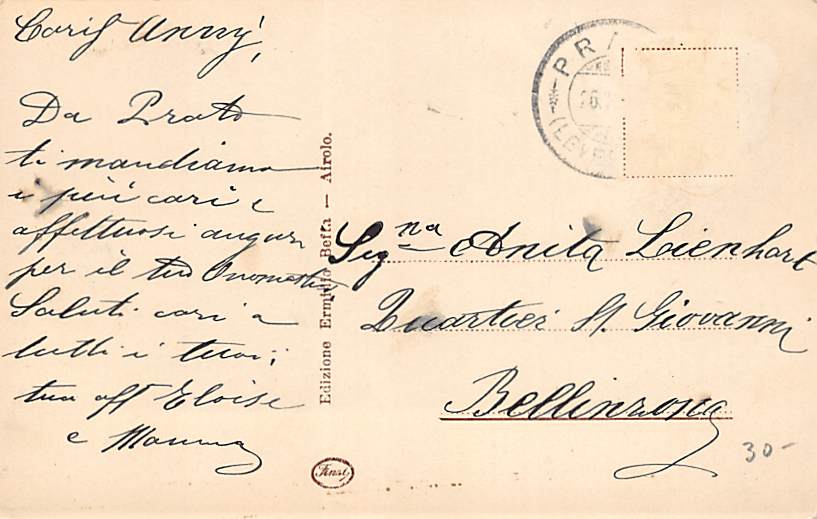 Caris Anny!,
Da Prato
ti mandiamo
i più cari e
affettuosi auguri
per il tuo Onomastico
Saluti cari a
tutti i tuoi;
tua aff Eloise
e Mamma
Edizione Erminio Beffa — Airolo.
PRA
26.
(LEVE
Sig.na Anita Lienhart
Quartier St. Giovanni
Bellinzona
30-